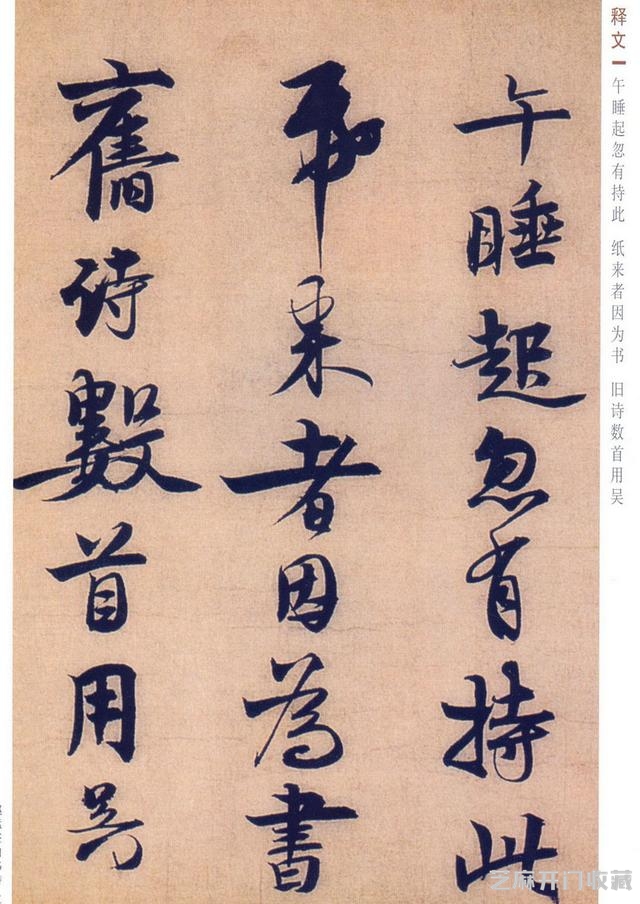 释文
午睡起忽有持此 纸来者因为书 旧诗数首用吴
午睡起忽有持此
帋来者因為書
舊诗數首用吴
芝麻开门收藏